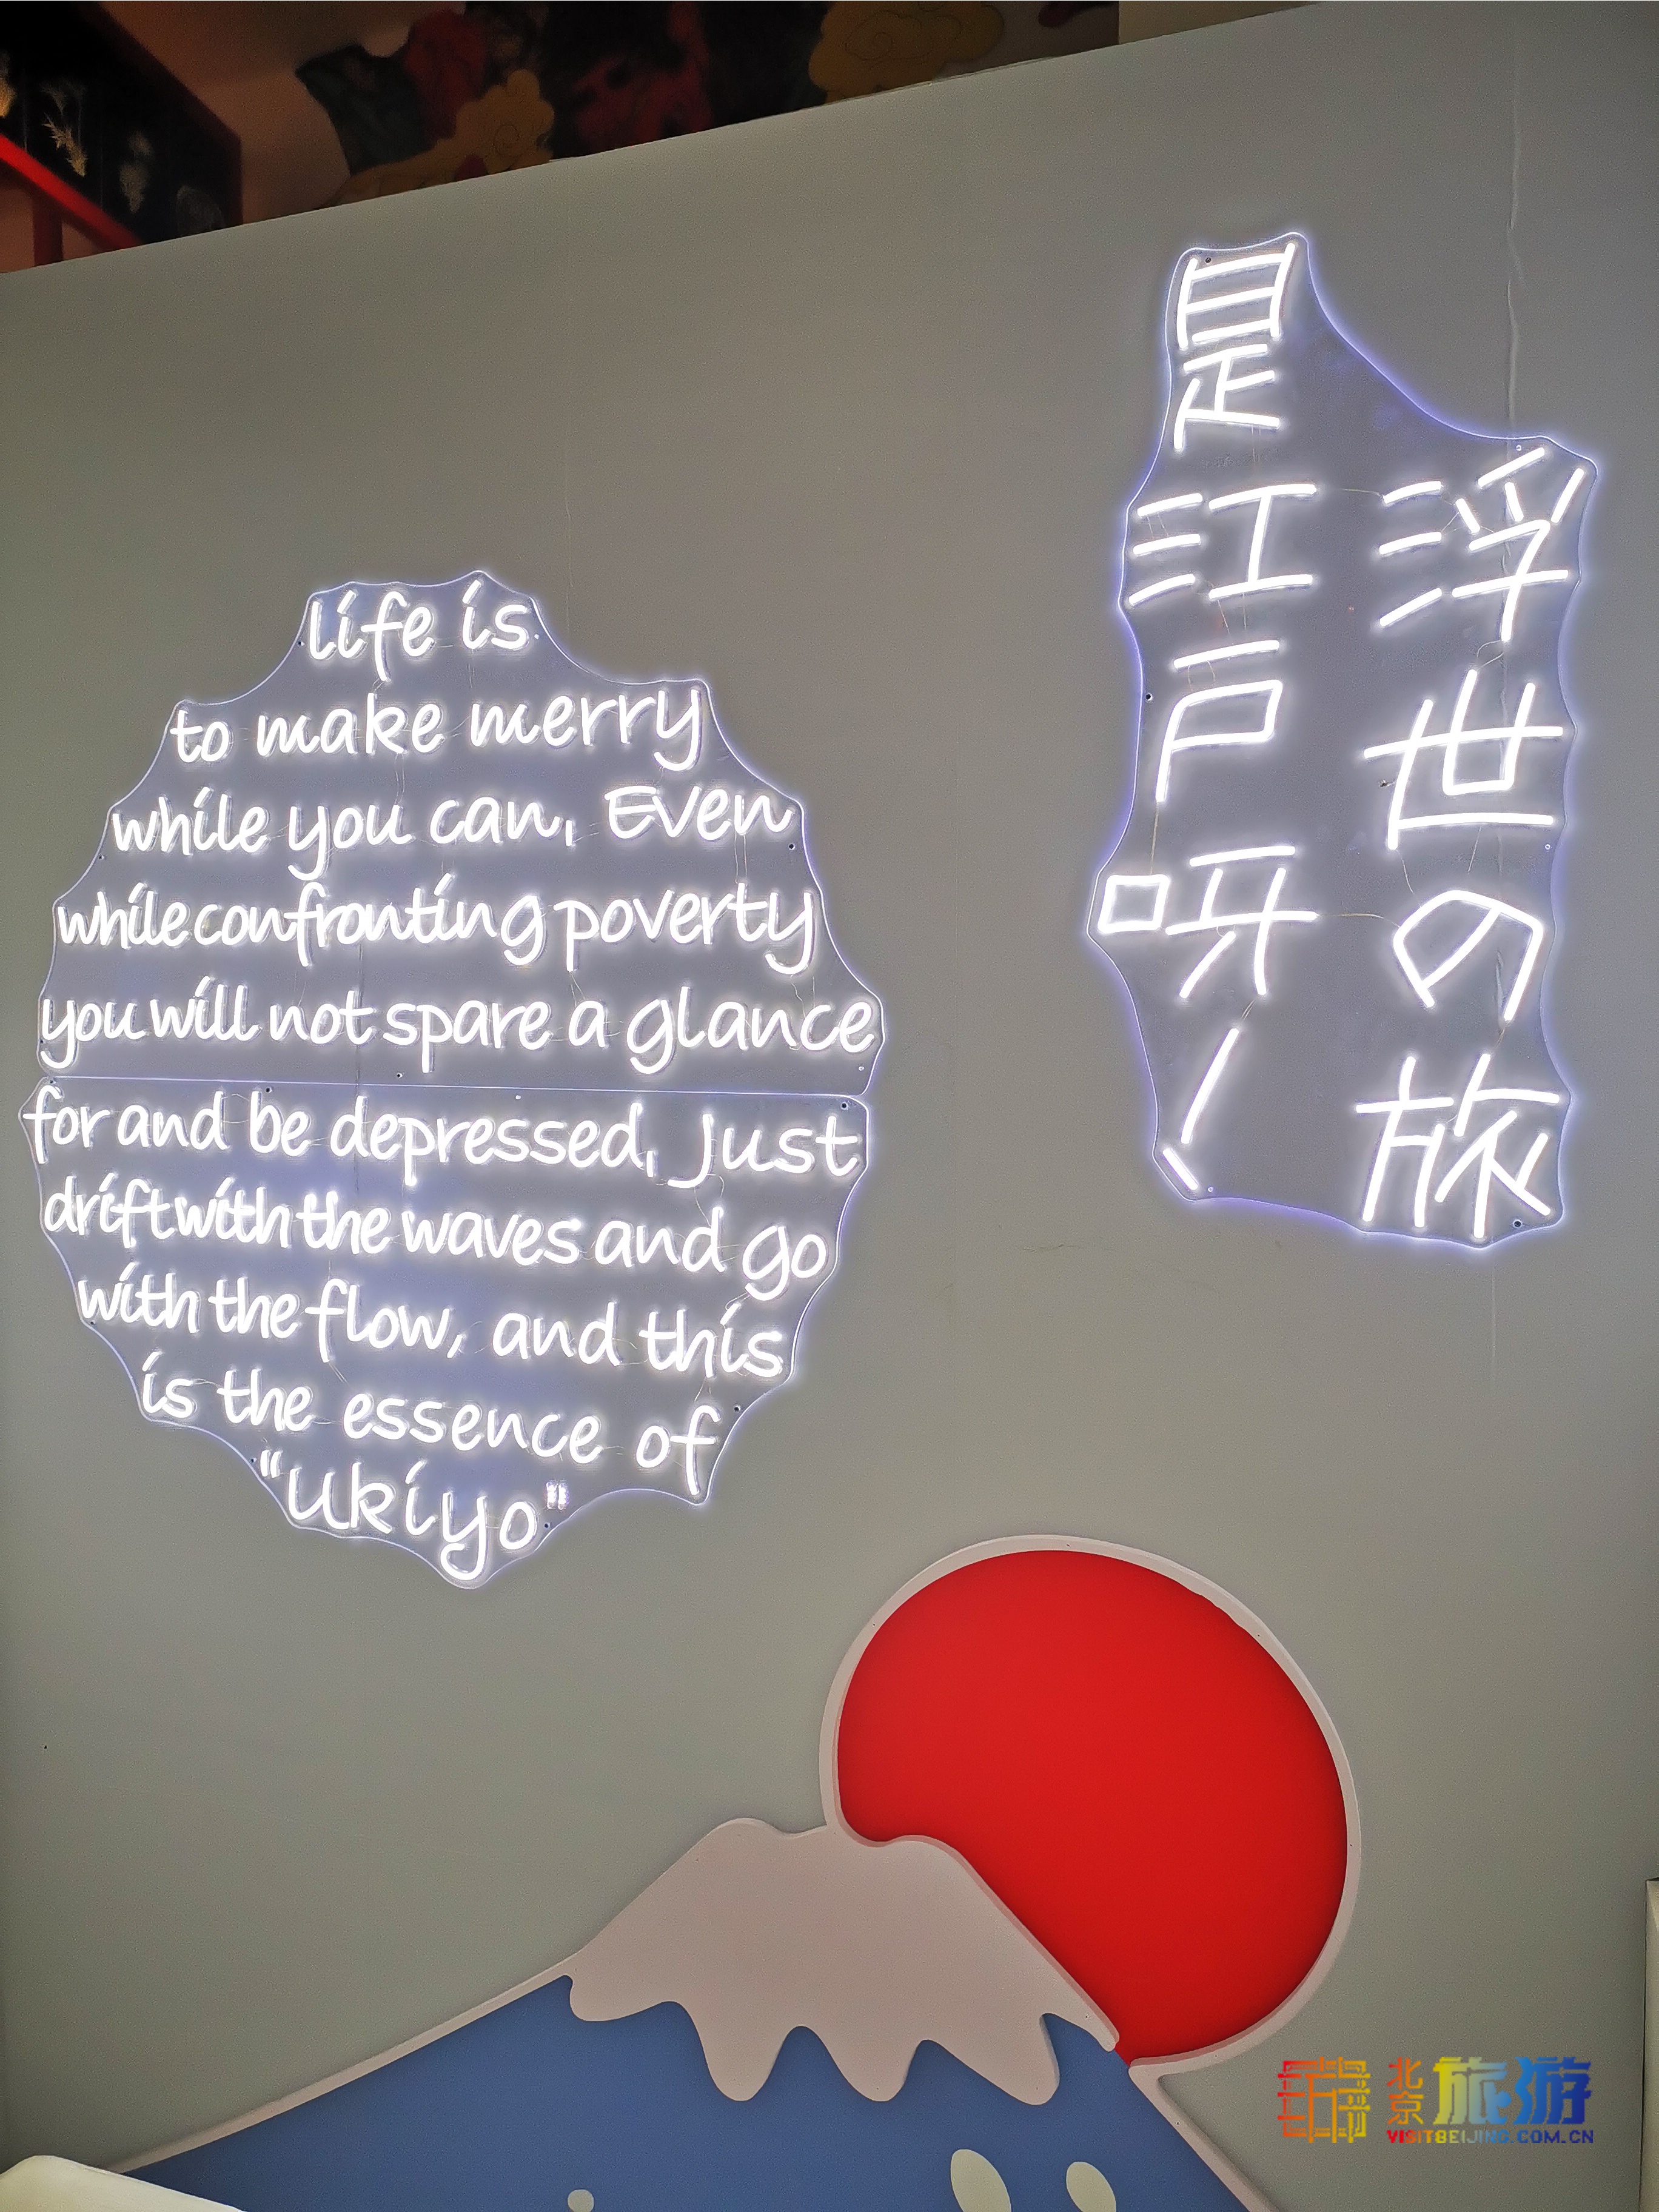 life is
to make merry
while you can, Even
while confronting poverty
you will not spare a glance
for and be depressed, Just
drift with the waves and go
with the flow, and this
is the essence of
"Ukiyo"
浮世の旅
是江户呀！
北京旅游
VISITBEIJING.COM.CN